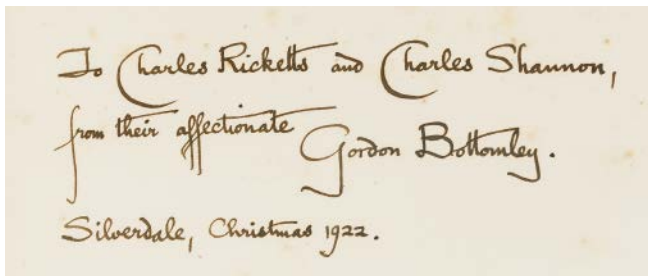 To Charles Ricketts and Charles Shannon,
from their affectionate Gordon Bottomley.
Silverdale, Christmas 1922.